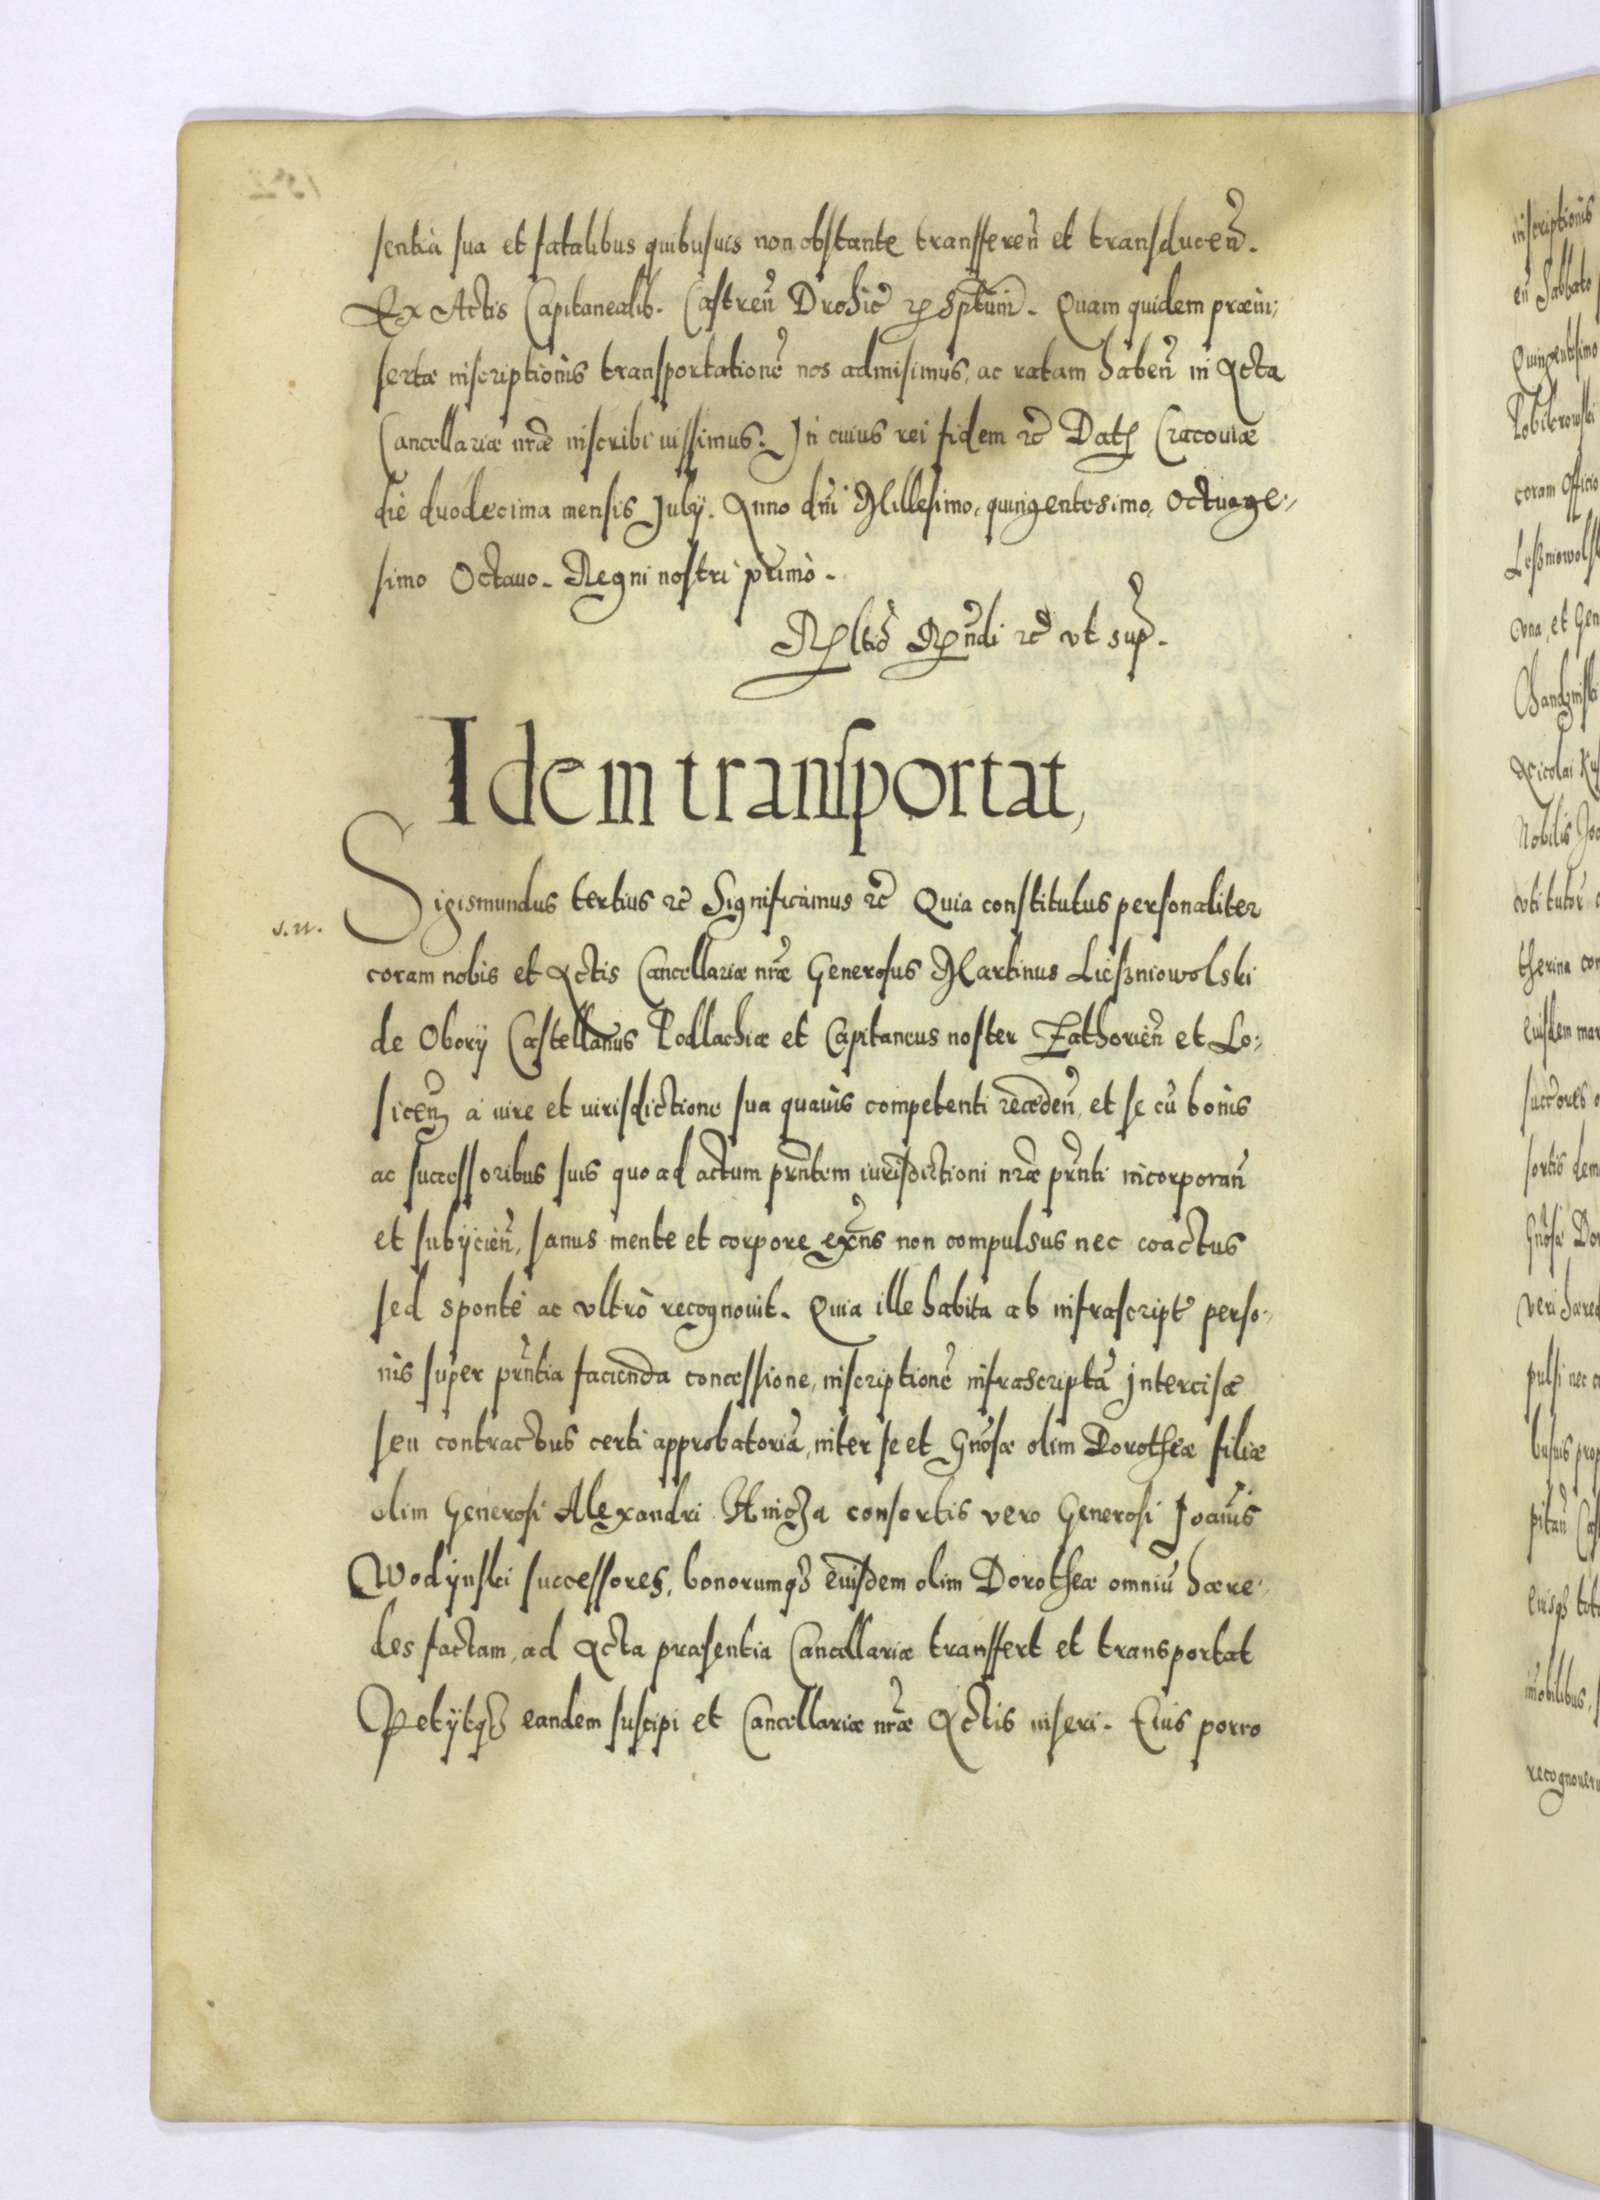 sentia sua et fatalibus quibusuis non obstante transferen̄ et transducen̄.
Ex Actis Capitanealib. Castren̄ Drohic̄ Sptum. Quam quidem præin:
sertæ inscriptionis transportationē nos admisimus, ac ratam haben̄ in Acta
Cancellariæ nr̄æ inscribi iussimus. In cuius rei fidem etc̄ Dat Cracouiæ
die duodecima mensis July. Anno dn̄i Millesimo, quingentesimo, Octuage-
simo Octauo. Regni nostri primo.
Rltio Rndi etc̄ vt sup.
Idem transportat,
Sigismundus tertius etc̄ Significamus etc̄ Quia constitutus personaliter
coram nobis et Actis Cancellariæ nr̄æ Generosus Martinus Lieszniowolski
de Obory Castellanus Podlachiæ et Capitaneus noster Zathorien̄ et Lo:
sicen̄ a iure et iurisdictione sua quauis competenti recæden̄, et se cū bonis
ac successoribus suis quo ad actum prn̄tem iurisdictioni nr̄æ prn̄ti incorporan̄
et subijcien̄, sanus mente et corpore exn̄s non compulsus nec coactus
sed sponte ac vltrò recognouit. Quia ille habita ab infrascript perso-
nis super prn̄tia facienda concessione, inscriptionē infrascriptā Intercisæ
seu contractus certi approbatoriā, inter se et Gn̄osæ olim Dorotheæ filiæ
olim Generosi Alexandri Hincza consortis vero Generosi Joan̄is
Wodijnski successores, bonorumq3 euisdem olim Dorotheæ omniū hære-
des factam, ad Acta præsentia Cancellariæ transfert et transportat
Petijtq3 eandem suscipi et Cancellariæ nr̄æ Actis inseri. Eius porro
inscriptionis
en̄ Sabbato
Quingentesimo
coram Officio
vna, et Gen
Nobilis Joa
vti tutor
therina con
eiusdem mar
succores
sortis dem
Gn̄osæ Dor
veri hæred
pulsi nec c
busuis prop
pitan̄ Cas
eiusq3 tot
mobilibus,
recognoueru